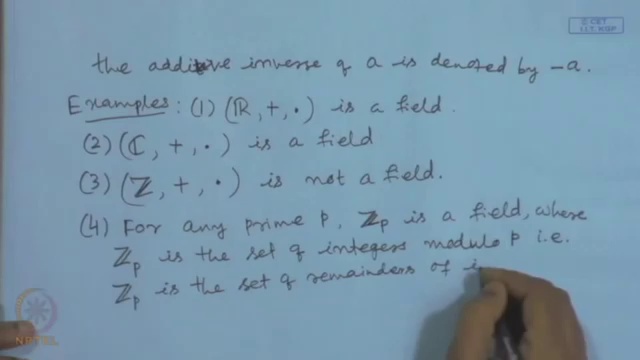 © CET
I.I.T. KGP
the additive inverse of a is denoted by -a.
Examples: (1) (ℝ, +, ·) is a field.
(2) (ℂ, +, ·) is a field
(3) (ℤ, +, ·) is not a field.
(4) For any prime p, ℤp is a field, where
ℤp is the set of integers modulo p i.e.
ℤp is the set of remainders of i
NPTEL